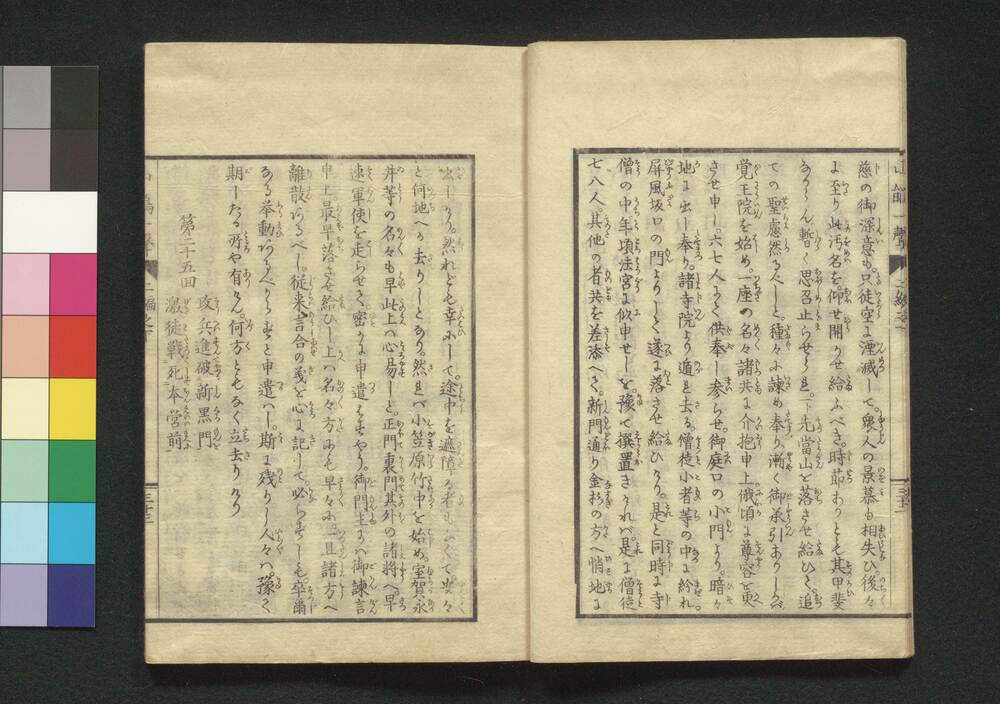 慈の御深意も只徒空に湮滅して衆人の景慕も相失ひ後々
に至り此汚名を仰せ開かせ給ふべき時節ありとも其甲斐
あるべからん暫く思召止らせられ下先當山を落させ給ひて追
ての聖慮然るべしと種々に諫め奉り漸く御承引ありしかバ
覚王院を始め一座の名々諸共に介抱申上俄頃に尊容を更
させ申し六七人にて供奉し参らせ御庭口の小門より暗々
地に出し奉り諸寺院より遁れ去る僧徒小者等の中に紛れ
屏風坂口の門よりして遂に落させ給ひけり是と同時に寺
僧の中年項法宮に似申せしを豫て撰置きければ是に僧徒
七八人其他の者共を差添へて新門通り金杉の方へ悄地に
出しける然れども幸にして途中を遮障る者もなくて
と何地へか去りしとなり然れバ小笠原竹中を始め室賀永
井等の名々も早此上ハ心易しと正門裏門其外の諸將へ早
速軍使を走らせて密かに申遣はすやう御門主にハ御諫言
申上最早落させ給ひし上ハ名々方にも早々に一旦諸方へ
離散あるべし従来言合の義を心に記して必らずしも卒爾
なる挙動あるべからずと申遣ハし斯て残りし人々ハ豫て
期したる所や有けん何方ともなく立去りけり
第二十五回
攻兵進破新黒門
激徒戰死本営前